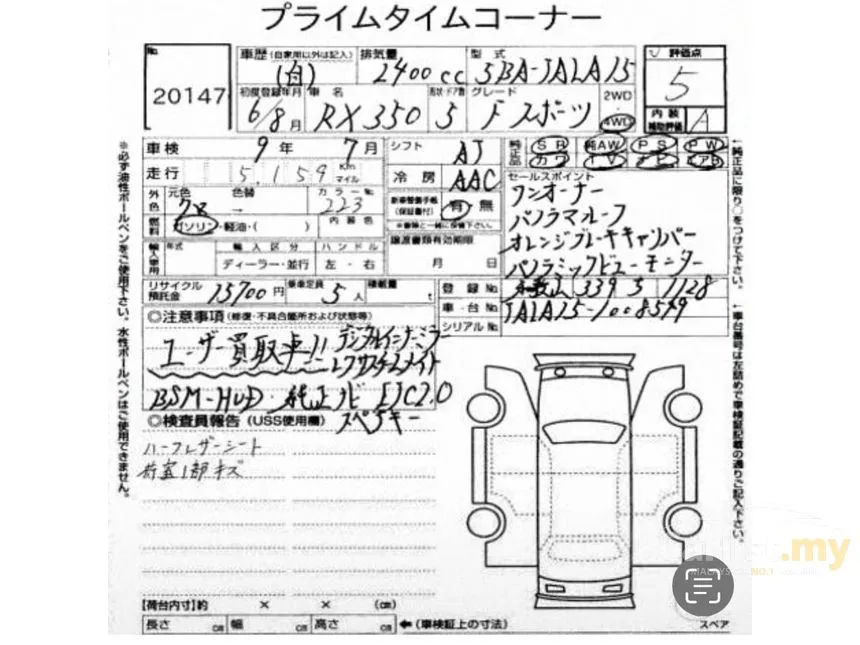 プライムタイムコーナー
No.
20147
車歴(自家用以外は記入)
(自)
排気量
2400cc
型式
5BA-TALA15
評価点
5
初度登録年月
6/8月
車名
RX350
形状・ドア数
5
グレード
Fスポーツ
2WD
4WD
内装
補助評価
A
車検 9年 7月
シフト
AT
純正品
SR 純AW PS PW
カワ TV ナビ エアB
走行 5,159 Km
マイル
冷房
AAC
セールスポイント
ワンオーナー
パノラマルーフ
オレンジブレーキキャリパー
パノラミックビューモニター
外色
元色
クロ
色替
→
カラーNo.
223
新車整備手帳
(保証書付)
有・無
※書類と一緒に保管下さい。
燃料
ガソリン・軽油・( )
内装色
譲渡書類有効期限
月 日
輸入車用
年式
輸入区分
ハンドル
ディーラー・並行
左・右
リサイクル
預託金
15700円
乗車定員
5人
積載量
t
登録No.
339 1128
車台No.
TALA15-1008599
シリアルNo.
◎注意事項(修復・不具合箇所および状態等)
ユーザー買取車!!
デジタルインナーミラー
レクサスチームメイト
BSM・HUD・純正ナビ ETC2.0
スペアキー
◎検査員報告(USS使用欄)
ハーフレザーシート
荷室1部キズ
【荷台内寸】約 × × (cm)
長さ cm 幅 cm 高さ cm ←(車検証上の寸法)
スペア
※必ず油性ボールペンをご使用下さい。水性ボールペンはご使用できません。
←純正品に限り○をつけて下さい。
←車台番号は左詰めで車検証記載の通りご記入下さい。
.my